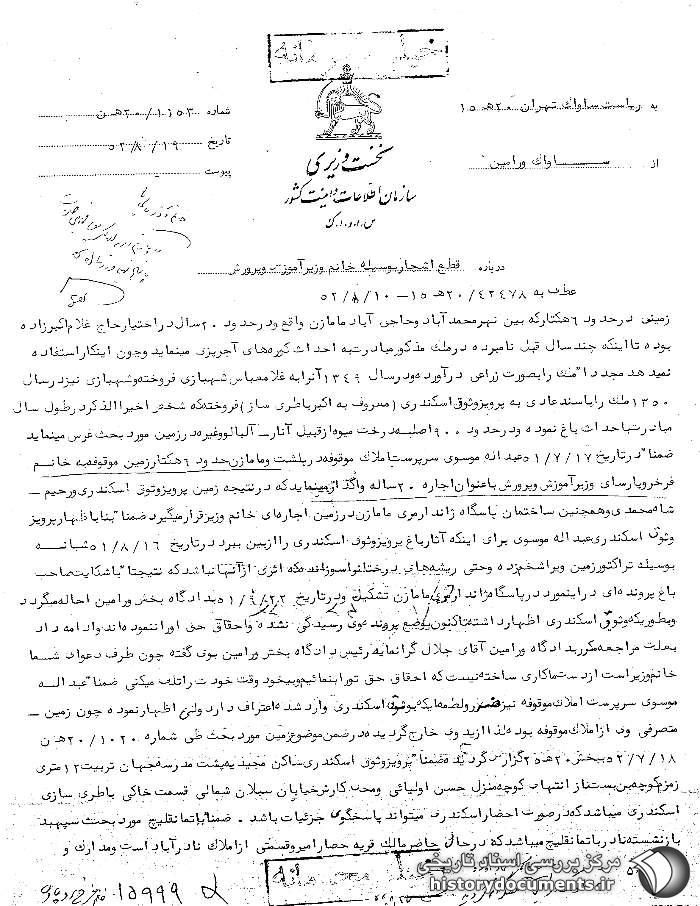 خیلی محرمانه
به ریاست ساواك تهران ۲۰هـ ۱۵
شماره ۱۱۵۳/۲۰هـ ن
تاریخ ۵۲/۸/۱۹
از ســاواك ورامین
پیوست
نخست وزیری
سازمان اطلاعات و امنیت کشور
س.ا.و.ا.ك
درباره قطع اشجار بوسیله خانم وزیر آموزش وپرورش
عطف به ۲۰/۴۲۴۷۸هـ ۱۵ – ۵۲/۸/۱۰
زمینی درحدود ۶ هکتار که بین نهر محمدآباد وحاجی آباد مامازن واقع ودرحدود ۲۰ سال دراختیار حاج غلام اکبرزاده
بوده تا اینکه چند سال قبل نامبرده درملك مذکور مبادرت به احداث کوره های آجرپزی مینماید وچون اینکار استفاده
نمیدهد مجددا" ملك را بصورت زراعی درآورده ودرسال ۱۳۴۹ آنرا به غلامعباس شهبازی فروخته وشهبازی نیز درسال
۱۳۵۰ ملك را باسند عادی به پرویز وثوق اسکندری (معروف به اکبر باطری ساز) فروخته که شخص اخیرالذکر درطول سال
مبادرت باحداث باغ نموده ودرحدود ۹۰۰ اصله درخت میوه از قبیل آنار – آلبالو وغیره درزمین مورد بحث غرس مینماید
ضمنا" درتاریخ ۵۱/۷/۱۷ عبداله موسوی سرپرست املاك موقوفه درپلشت ومامازن حدود ۶ هکتار زمین موقوفه به خانم
فرخ روپارسای وزیر آموزش وپرورش باعنوان اجاره ۲۰ ساله واگذار مینماید که درنتیجه زمین پرویز وثوق اسکندری ورحیم –
شاه محمدی وهمچنین ساختمان پاسگاه ژاندارمری مامازن درزمین اجاره ای خانم وزیر قرار میگیرد ضمنا" بنا باظهار پرویز
وثوق اسکندری عبداله موسوی برای اینکه آثار باغ پرویز وثوق اسکندری را از بین ببرد درتاریخ ۵۱/۸/۱۶ شبانــه
بوسیله تراکتور زمین ویرا شخم زده وحتی ریشه های درختان را سوزانده که اثری از آنها نباشد که نتیجتا" باشکایت صاحب
باغ پرونده ای دراینمورد درپاسگاه ژاندارمری مامازن تشکیل ودرتاریخ ۵۱/۹/۲۲ بدادگاه بخش ورامین احاله میگردد
وبطوریکه وثوق اسکندری اظهار داشته تاکنون بوضع پرونده وی رسیدگی نشده واحقاق حق او را ننموده اند وادامه داد
بعلت مراجعه مکرر بدادگاه ورامین آقای جلال گرانمایه رئیس دادگاه بخش ورامین بوی گفته چون طرف دعوای شــما
خانم وزیر است از دست ما کاری ساخته نیست که احقاق حق تو را بنمائیم وبیخود وقت خودت را تلف میکنی ضمنا" عبدالــه
موسوی سرپرست املاك موقوفه نیز به ضرر ولطمه ایکه بوثوق اسکندری وارد شده اعتراف دارد ولی اظهار نموده چون زمین –
متصرفی وی از املاك موقوفه بوده لذا از ید وی خارج گردیده درضمن موضوع زمین مورد بحث طی شماره ۲۰/۱۰۲۰هـ ن
۵۲/۷/۱۸ به بخش ۲۰هـ ۲۵ گزارش گردیده ضمنا" پرویز وثوق اسکندری ساکن مجیدیه پشت مدرسه جهان تربیت ۱۲ متری
زمزم کوچه بن بست از انتهای کوچه منزل حسن اولیائی ومحل کارش خیابان سبلان شمالی قسمت خاکی باطری سازی
اسکندری میباشد که درصورت احضار اسکندری میتواند پاسخگوی جزئیات باشد . ضمنا" باتمانقلیچ مورد بحث سپهبد
بازنشسته نادر باتمانقلیچ میباشد که درحال حاضر مالك قریه حصار امیر وقسمتی از املاك نادرآباد است ومدارك و
خیلی محرمانه
۱۵۹۹۹
مرکز بررسی اسناد تاریخی
historydocuments.ir